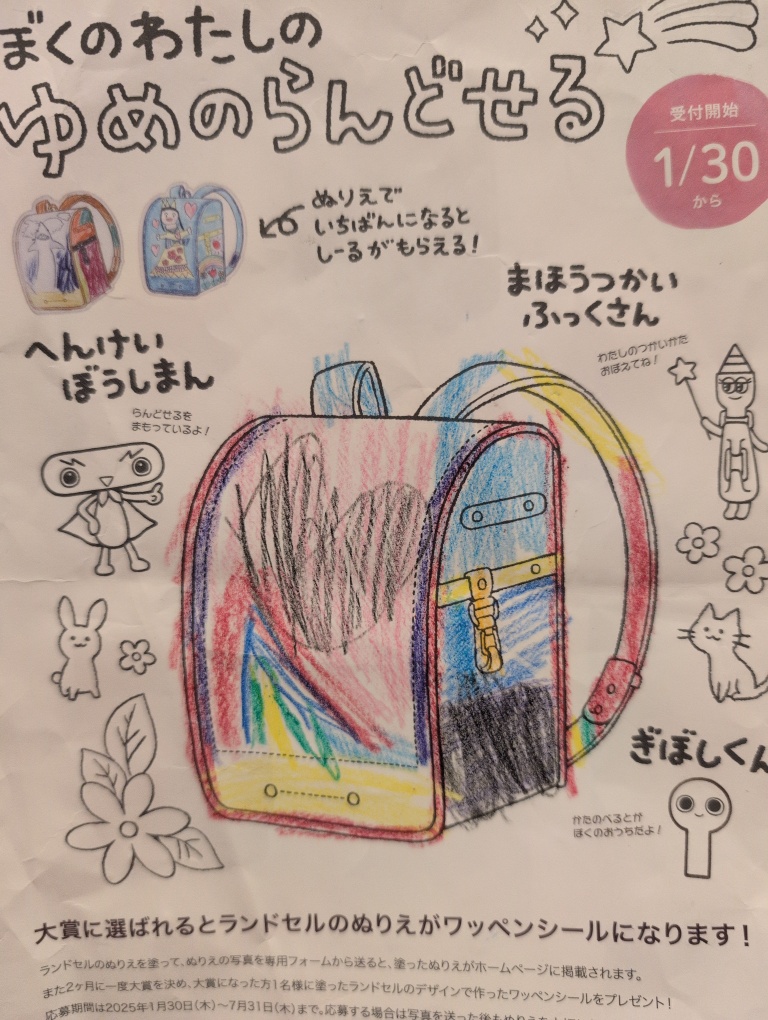 ぼくのわたしの
ゆめのらんどせる
受付開始
1/30
から
ぬりえで
いちばんになると
しーるがもらえる!
まほうつかい
ふっくさん
わたしのつかいかた
おぼえてね!
へんけい
ぼうしまん
らんどせるを
まもっているよ!
ぎぼしくん
かたのべるとが
ぼくのおうちだよ!
大賞に選ばれるとランドセルのぬりえがワッペンシールになります!
ランドセルのぬりえを塗って、ぬりえの写真を専用フォームから送ると、塗ったぬりえがホームページに掲載されます。
また2ヶ月に一度大賞を決め、大賞になった方1名様に塗ったランドセルのデザインで作ったワッペンシールをプレゼント!
応募期間は2025年1月30日(木)〜7月31日(木)まで。応募する場合は写真を送った後もぬりえを